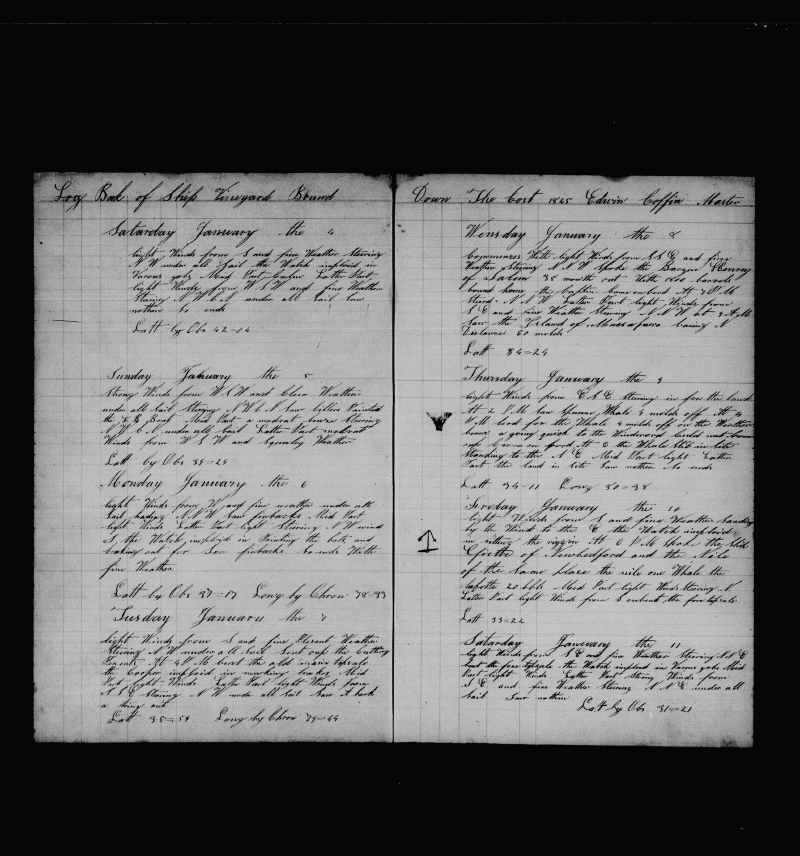 Log Bok of Ship Vineyard Bound
Saturday January the 4
light Winds from S and fine Weather Steering
N W under all Sail the Watch imploid in
Varous gobs Mid Part Calm Latter Part
light Winds from W S W and fine Weather
Stering N W b N under all Sail Saw
nothin So ends
Latt by Obs 42=04
Sunday January the 5
Strong Winds from W S W and Clear Weather
under all Sail Stering N W b N
the Boat Mid Part a Stering
N W b N under all Sail Latter Part
Winds from W S W and Squaley Weather
Latt by Obs 39=29
Monday January the 6
light Winds from W and fine weather under all
Sail heading N N W Saw finbacks Mid Part
light Winds Latter Part light Stering N W wind
S the Watch imploid in Painting the bots and
looking out for Saw finbacks So ends With
fine Weather
Latt by Obs 37=17 Long by Chron 78=33
Tusday January the 7
light Winds from S and fine Plesent Weather
Stering N W under all Sail Sent oup the Cutting
At 4 P M bent the old main topsale
the Cooper imploid in making Mid
Part light Winds Latter Part light Winds from
S S E Stering N W under all Sail Saw
a going out
Latt 35=59 Long by Chron 79=44
Down The Cost 1845 Edwin Coffin Master
Wensday January the 8
Commences With light Winds from S S E and fine
Weather Stering N N W Spoke the Barque Henry
of Salem 38 month out With 1800 barrels
bound home the Captin came onbord At 7 P M
Sterd N N W Latter Part light Winds from
S E and fine Weather Stering N N W at 9 A M
Saw the Island of Massafuero baring N
Distance 60 miles
Latt 34=24
Thursday January the 9
Light Winds from E S E stering in for the land
At 2 P M Saw Sparm Whale 4 miles off At 4
P M lord for the Whale 4 miles off on the Weather
a going quick to the Windward
At 6 the Whale
Standing to the N E Mid Part light Latter
Part the land in Site Saw nothin So ends
Latt 34=11 Long 80=38
Friday January the 10
light Winds from S and fine Weather Standing
by the Wind to the E the Watch imploid
in the riggin At 6 P M Spoke the Ship
of Newbedford and the Nile
of the Same place the nile one Whale the
20 bbls Mid Part light Winds Stering N
Latter Part light Winds from S the fore topsale
Latt 33=22
Saturday January the 11
light Winds from S E and fine Weather Stering N b E
bent the fore topsale the Watch imploid in Varous gobs Mid
Part light Winds Latter Part Strong Winds from
S E and fine Weather Stering N N E under all
Sail Saw nothin
Latt by Obs 31=21